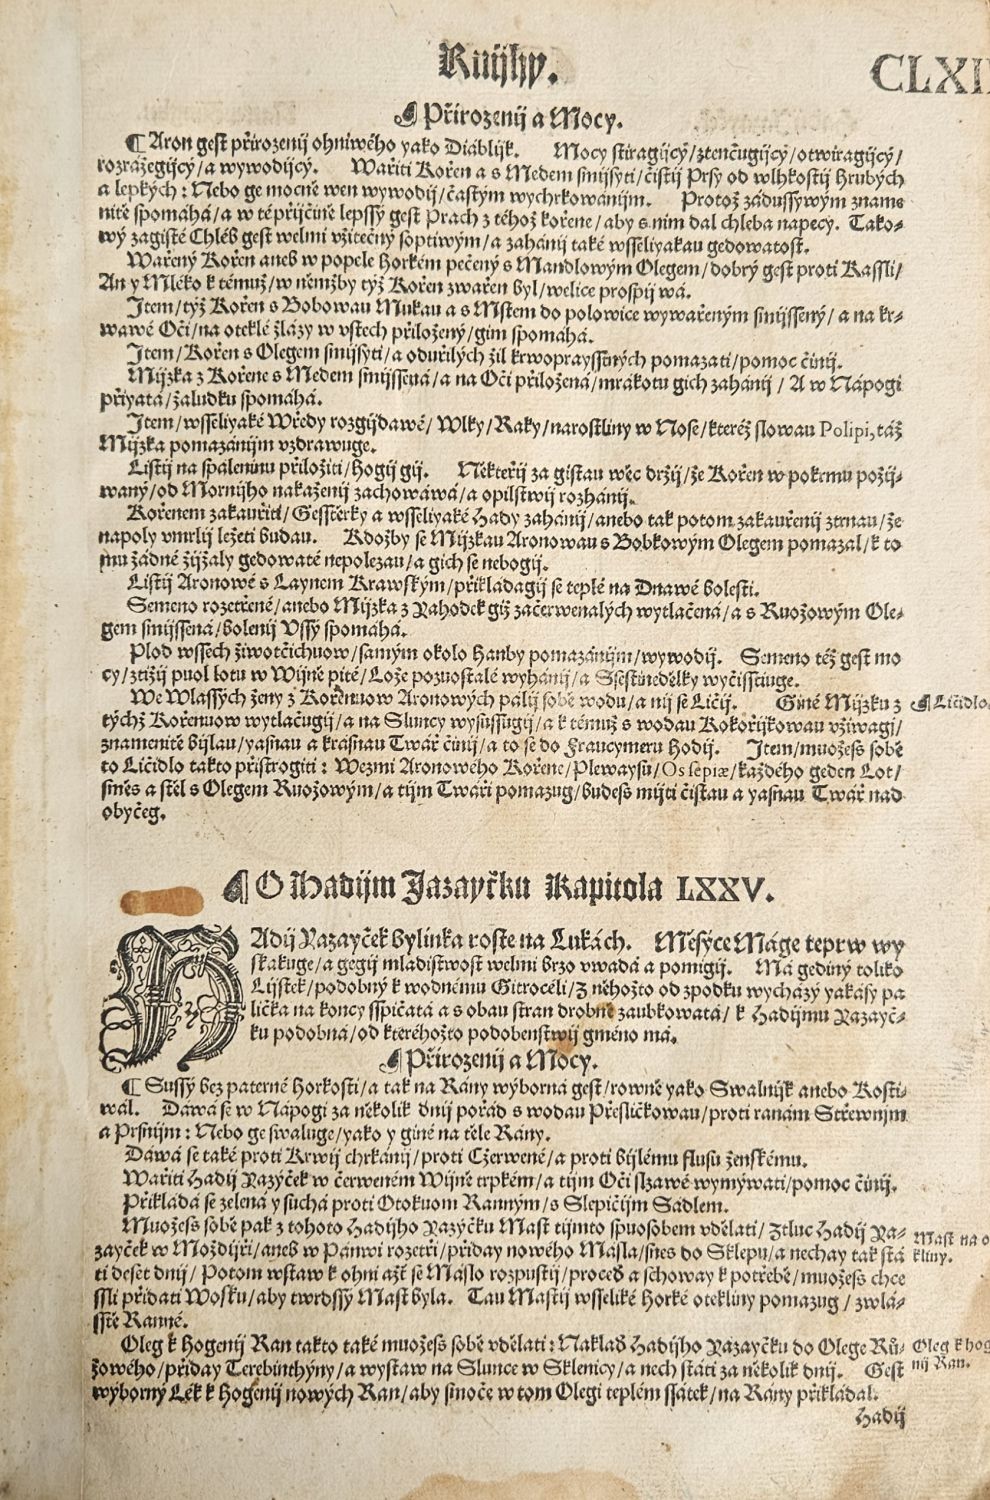 Knijhy.
CLXI
¶ Přirozenij a Mocy.
¶ Aron gest přirozenij ohniwého yako Diáblijk. Mocy stiragijcý/ztenčugijcý/otwiragijcý/
rozrážegijcý/a wywodijcý. Wařiti Kořen a s Medem smijsyti/čistij Prsy od wlhkostij hrubých
a lepkých: Nebo ge mocně wen wywodij/častým wychrkowánijm. Protož zádussywým zname
nitě spomáhá/a w té přijčině lepssý gest Prach z téhož kořene/aby s nim dal chleba napecy. Tako-
wý zagisté Chléb gest welmi vžitečný soptiwým/a zahánij také wsseliyakau gedowatost.
Wařený Kořen aneb w popele horkém pečený s Mandlowým Olegem/dobrý gest proti Kassli/
An y Mléko k témuž/w němžby týž Kořen zwařen byl/welice prospijwá.
Jtem/týž Kořen s Bobowau Mukau a s Mstem do polowice wywařeným smijssený/a na kr-
wawé Oči/na oteklé žlázy w vstech přiložený/gim spomáhá.
Jtem/Kořen s Olegem smijsyti/a oduřilých žil krwopraysstěných pomazati/pomoc činij.
Mijzka z Kořene s Medem smijssená/a na Oči přiložená/mrákotu gich zahánij/A w Nápogi
přiyatá/žaludku spomáhá.
Jtem/wsseliyaké Wředy rozgijdawé/Wlky/Raky/narostliny w Nose/kteréž slowau Polipi,táž
Mijzka pomazánijm vzdrawuge.
Listij na spáleninu přiložiti/hogij gij. Někteřij za gistau wěc držij/že Kořen w pokrmu požij-
waný/od Mornijho nakaženij zachowáwá/a opilstwij rozhánij.
Kořenem zakauřiti/Gesstěrky a wsseliyaké Hady zahánij/anebo tak potom zakauřenij ztrnau/že
napoly vmrlij ležeti budau. Kdožby se Mijzkau Aronowau s Bobkowým Olegem pomazal/k to
mu žádné žijžaly gedowaté nepolezau/a gich se nebogij.
Listij Aronowé s Laynem Krawským/přikládagij se teplé na Dnawé bolesti.
Semeno rozetřené/anebo Mijzka z Yahodek giž začerwenalých wytlačená/a s Ruožowým Ole-
gem smijssená/bolenij Vssý spomáhá.
Plod wssech žiwotčichuow/samým okolo Hanby pomazánijm/wywodij. Semeno též gest mo
cy/ztijži puol lotu w Wijně pité/Lože pozuostalé wyhánij/a Ssestinedělky wyčissťiuge.
We Wlassých ženy z Kořenuow Aronowých pálij sobě wodu/a nij se Ličij. Giné Mijzku z
týchž Kořenuow wytlačugij/a na Sluncy wysussugij/a k témuž s wodau Kokořijkowau vžiwagij/
znamenitě bijlau/yasnau a krásnau Twář činij/a to se do Fraucymeru hodij. Jtem/muožess sobě
to Ličidlo takto přistrogiti: Wezmi Aronowého Kořene/Plewaysu/Os sepiæ/každého geden Lot/
smes a stěl s Olegem Ruožowým/a tijm Twáři pomazug/budess mijti čistau a yasnau Twář nad
obyčeg.
¶ Ličidlo
¶ O Hadijm Jazayčku Kapitola LXXV.
HAdij Yazayček bylinka roste na Lukách. Měsýce Máge teprw wy
skakuge/a gegij mladistwost welmi brzo vwadá a pomigij. Má gediný toliko
Lijstek/podobný k wodnému Gitrocéli/z něhožto od zpodku wycházý yakási pa
lička na koncy sspičatá a s obau stran drobně zaubkowatá/k Hadijmu Yazayč-
ku podobná/od kteréhožto podobenstwij gméno má.
¶ Přirozenij a Mocy.
¶ Sussý bez paterné horkosti/a tak na Rány wýborná gest/rowně yako Swalnijk anebo Kosti-
wal. Dáwá se w Nápogi za několik dnij pořád s wodau Přesličkowau/proti ranám Střewnjm
a Prsnijm: Nebo ge swaluge/yako y giné na těle Rány.
Dáwá se také proti Krwij chrkánij/proti Čzerwené/a proti bijlému flusu ženskému.
Wařiti Hadij Yazýček w čerweném Wijně trpkém/a tijm Oči slzawé wymýwati/pomoc činij.
Přikládá se zelená y suchá proti Otokuom Ranným/s Slepičijm Sádlem.
Muožess sobě pak z tohoto Hadijho Yazýčku Mast tijmto spuosobem vdělati/Ztluc Hadij Ya-
zayček w Moždijři/aneb w Pánwi rozetři/přiday nového Másla/snes do Sklepu/a nechay tak stá
ti deset dnij/Potom wstaw k ohni ažť se Máslo rozpustij/proceď a schoway k potřebě/muožess chce
ssli přidati Wosku/aby twrdssý Mast byla. Tau Mastij wsseliké horké otekliny pomazug/zwlá-
sstě Ranné.
Mast na o
kliny.
Oleg k Hogenij Ran takto také muožess sobě vdělati: Naklaď Hadijho Yazayčku do Olege Rů-
žowého/přiday Terebinthýny/a wystaw na Slunce w Sklenicy/a nech státi za několik dnij. Gest
wýborný Lék k Hogenij nowých Ran/aby smoče w tom Olegi teplém ssátek/na Rány přikládal.
Oleg k hog
nij Ran.
Hadij